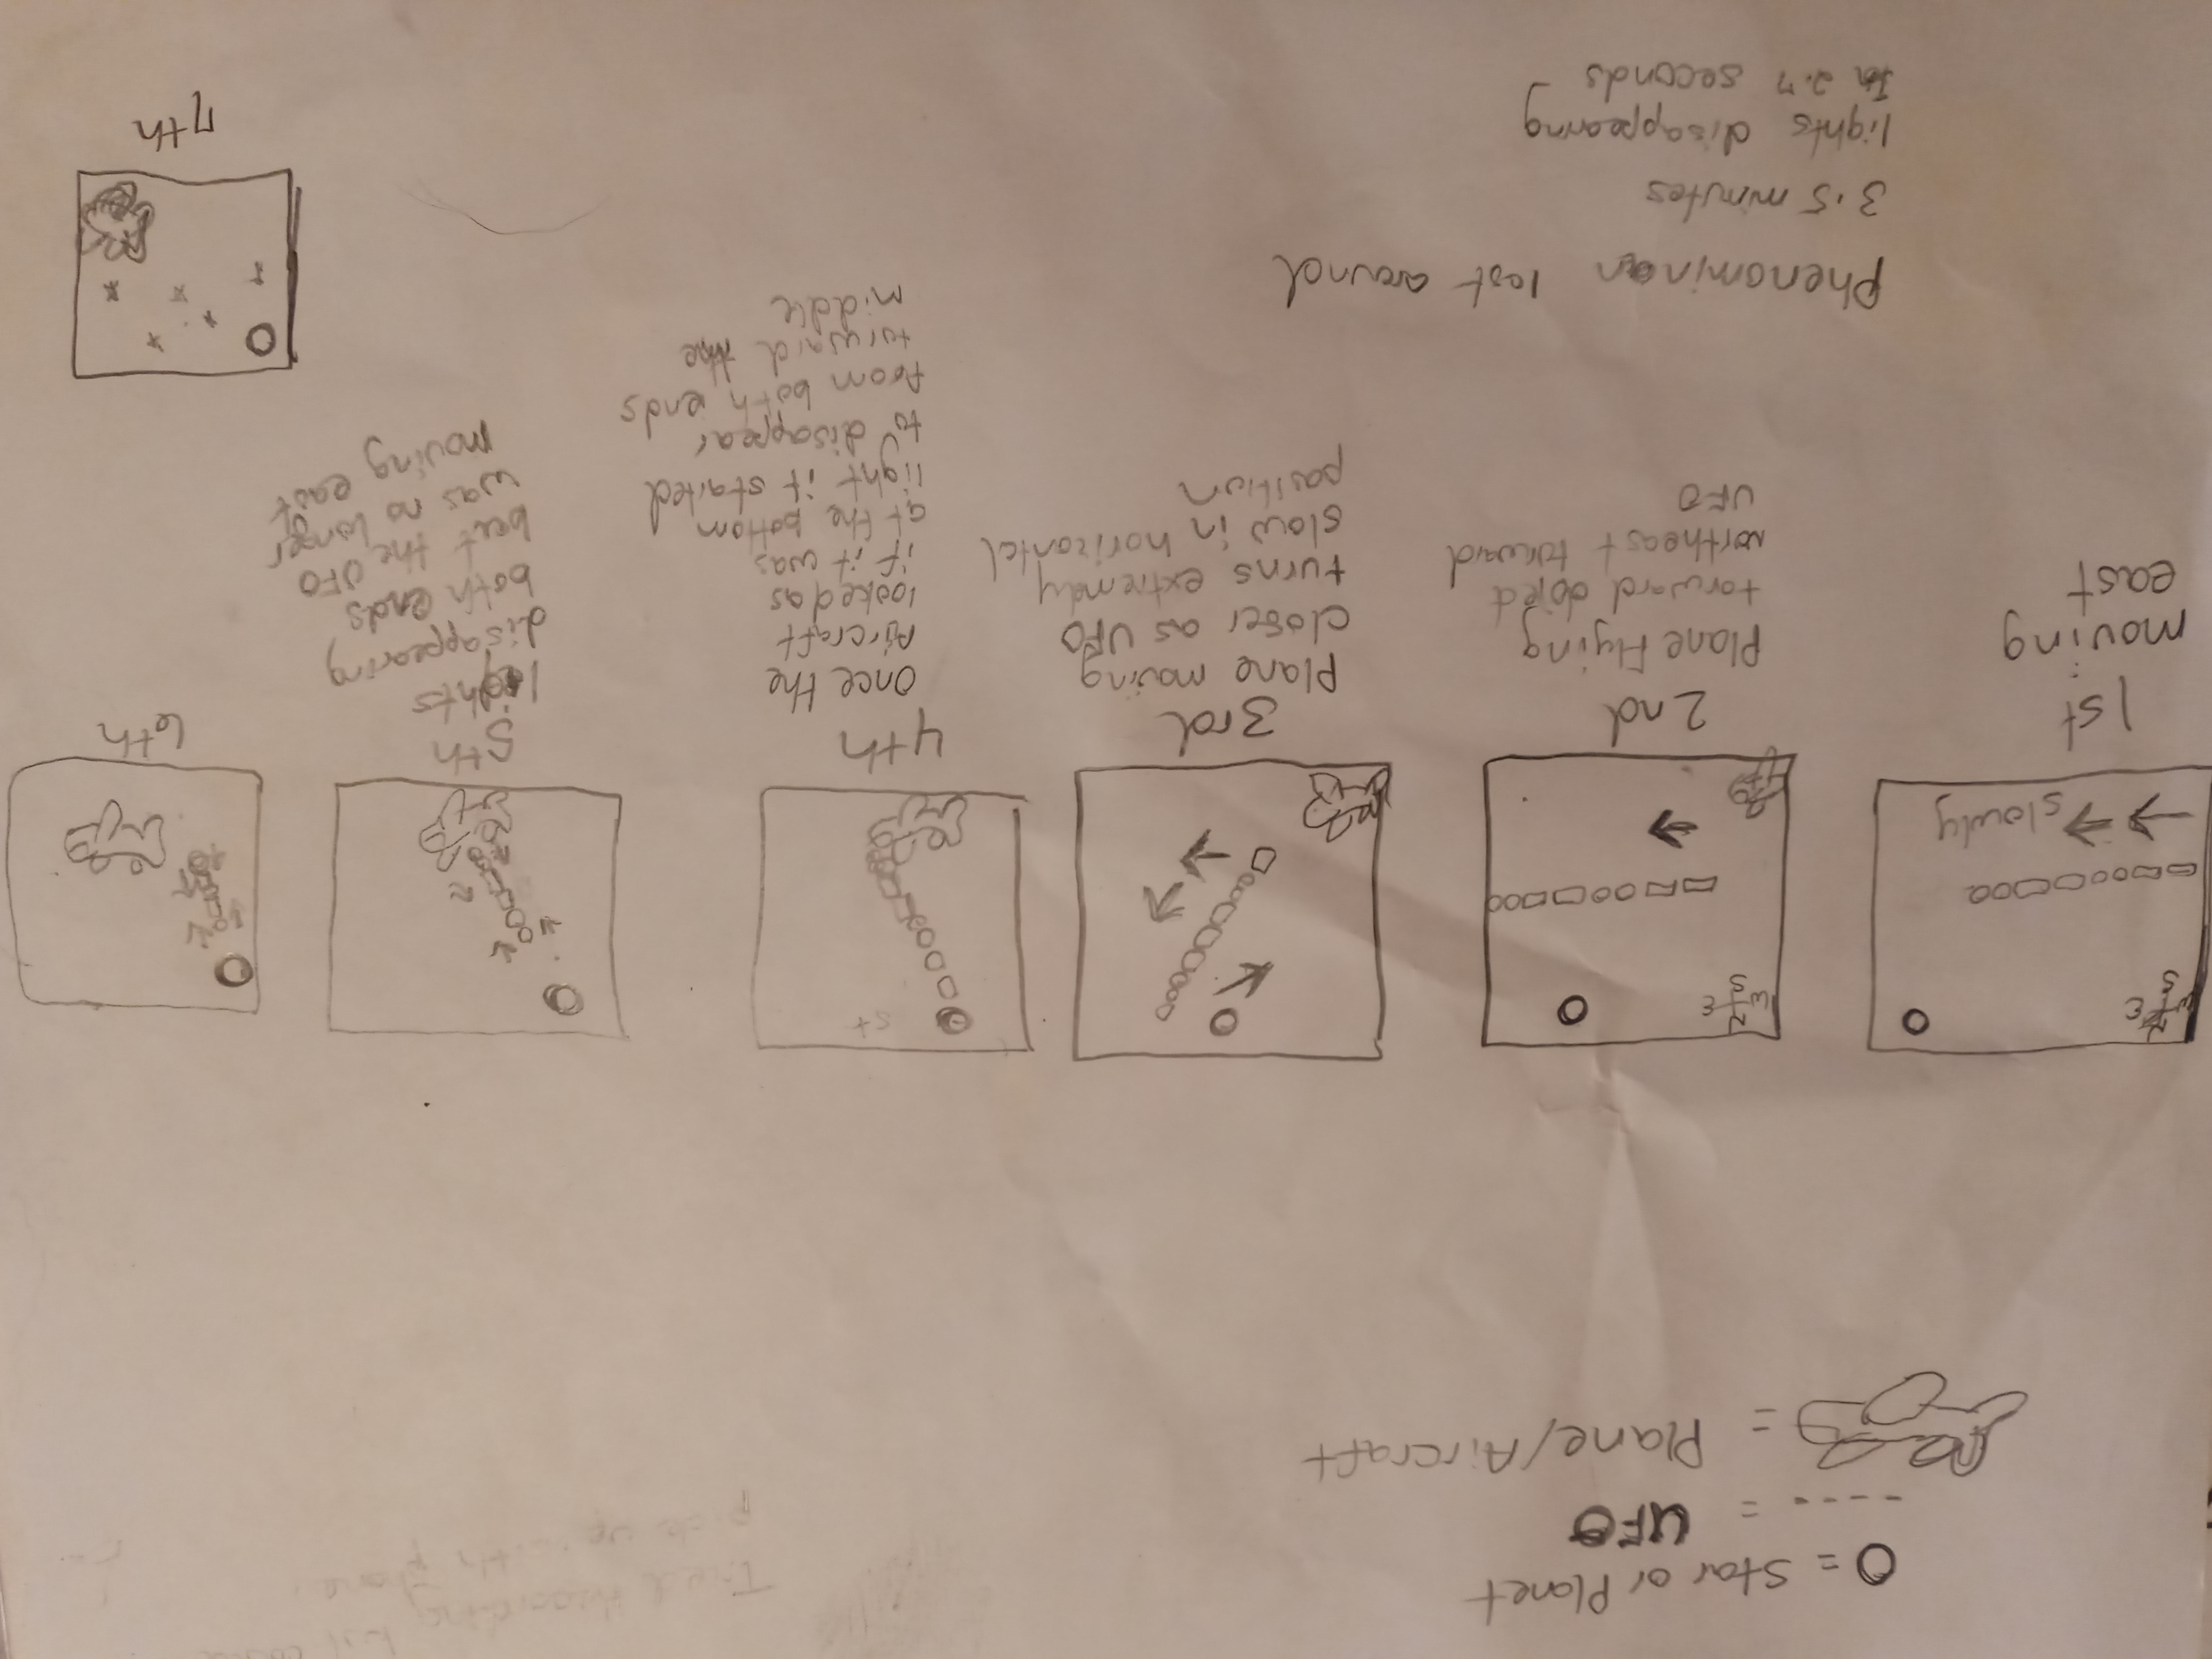 O = Star or Planet
- - - - = UFO
= Plane/Aircraft
Tried Recording but
pick up with phone.
N
W E
S
slowly
1st
moving
east
N
W E
S
2nd
Plane Flying
torward object
Northeast torward
UFO
3rd
Plane moving
closer as UFO
turns extremely
slow in horizontal
position
st
4th
Once the
Aircraft
looked as
if it was
at the bottom
light it started
to disappear
from both ends
torward the
middle
5th
lights
disappearing
both ends
but the UFO
was no longer
moving east
6th
7th
Phenominon last around
3.5 minutes
lights disappearing
In 2.7 seconds